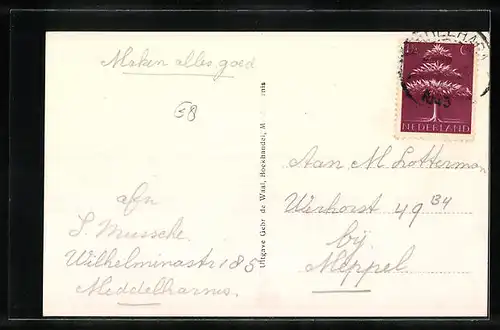 Maken alles goed
E8
afn
S. Mussche
Wilhelminastr 185
Meddelharnis.
Uitgave Gebr de Waal, Boekhandel, M nis
1½ C
1943
NEDERLAND
Aan M Lotterman
Werhorst 49 34
bij
Meppel